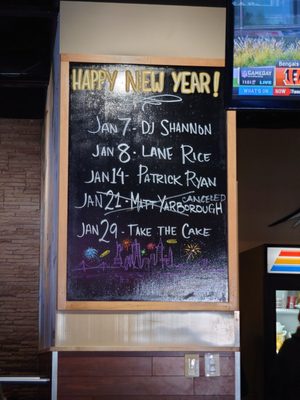 HAPPY NEW YEAR!
JAN 7 - DJ SHANNON
JAN 8 - LANE RICE
JAN 14 - PATRICK RYAN
JAN 21 - MATT YARBOROUGH CANCELED
JAN 29 - TAKE THE CAKE
Bengals
GAMEDAY
WHAT'S ON